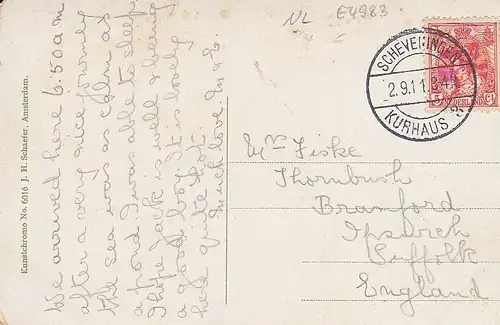 NL E4983
We arrived here 6.50 a m
after a very nice journey
the sea was as calm as
a pond I was able to sleep
I hope Jack is well & being
a good boy It is lovely
here quite hot.
much love. M & E.
Kunstchromo No. 6016 J. H. Schaefer, Amsterdam.
SCHEVENINGEN
2.9.11.8-
KURHAUS
5 NEDERLAND Ct
Mrs Fiske
Thornbush
Bramford
Ipswich
Suffolk
England